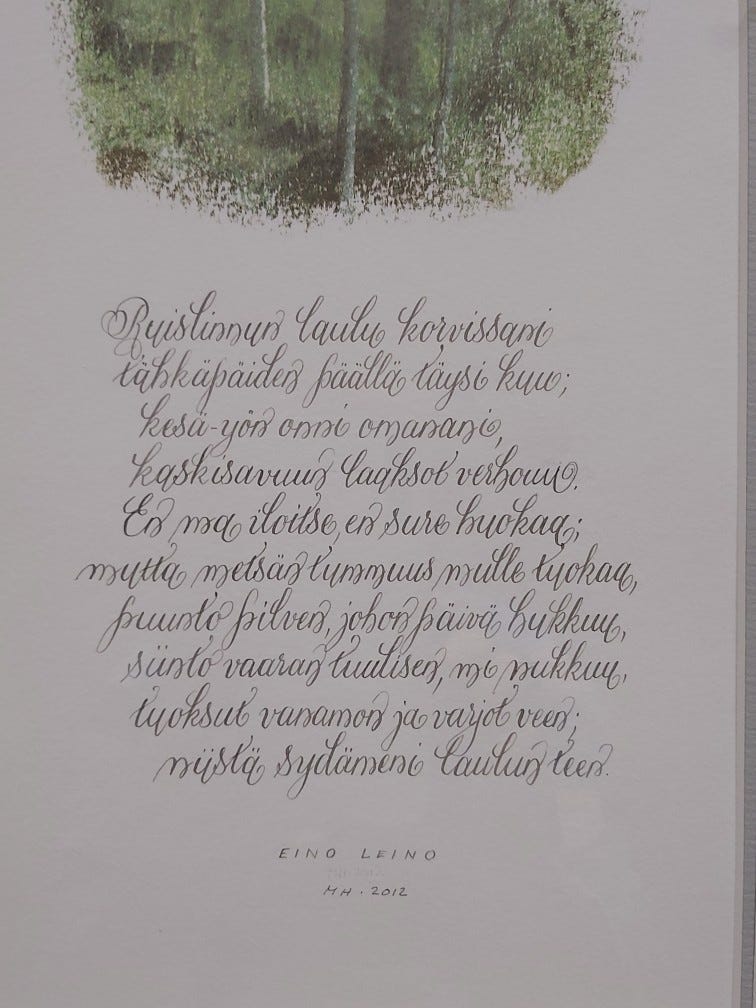 Ruislinnun laulu korvissani
tähkäpäiden päällä täysi kuu;
kesä-yön onni omanani,
kaskisavuun laaksot verhouu.
En ma iloitse, en sure huokaa;
mutta metsän tummuus mulle tuokaa,
puunto pilven, johon päivä hukkuu,
siinto vaaran tuulisen, mi nukkuu,
tuoksut vanamon ja varjot veen;
niistä sydämeni laulun teen.
EINO LEINO
MH. 2012